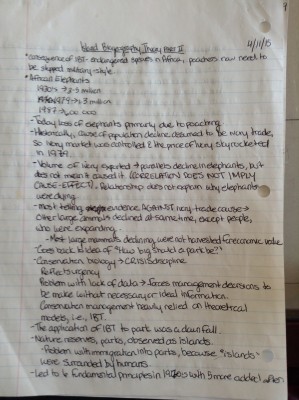 Island Biogeography Theory Part II
4/11/15
*consequence of IBT - endangered species in Africa, poachers now need to
be stopped military style
*African Elephants
1930's → 3-5 million
1979 → 1.3 million
1987 → 600,000
- Today loss of elephants primarily due to poaching
- Historically, cause of population decline assumed to be ivory trade,
so ivory market was controlled & the price of ivory skyrocketed
in 1989.
- Volume of ivory exported → parallels decline in elephants, but
does not mean it caused it (CORRELATION DOES NOT IMPLY
CAUSE-EFFECT). Relationship does not explain why elephants
were dying
- Most telling evidence AGAINST ivory-trade cause →
other large animals declined at same time, except people,
who were expanding.
- Most large mammals declining were not harvested for economic value
- Goes back to idea of "How big should a park be?"
- Conservation biology → CRISIS discipline
Reflects urgency
Problem with lack of data → forces management decisions to
be made without necessary or ideal information.
Conservation management heavily relied on theoretical
models, i.e., IBT.
- The application of IBT to parks was a downfall.
- Nature reserves, parks, observed as islands.
- Problem with immigration into parks, because "islands"
were surrounded by humans.
- Led to 6 fundamental principles in 1970's with 5 more added